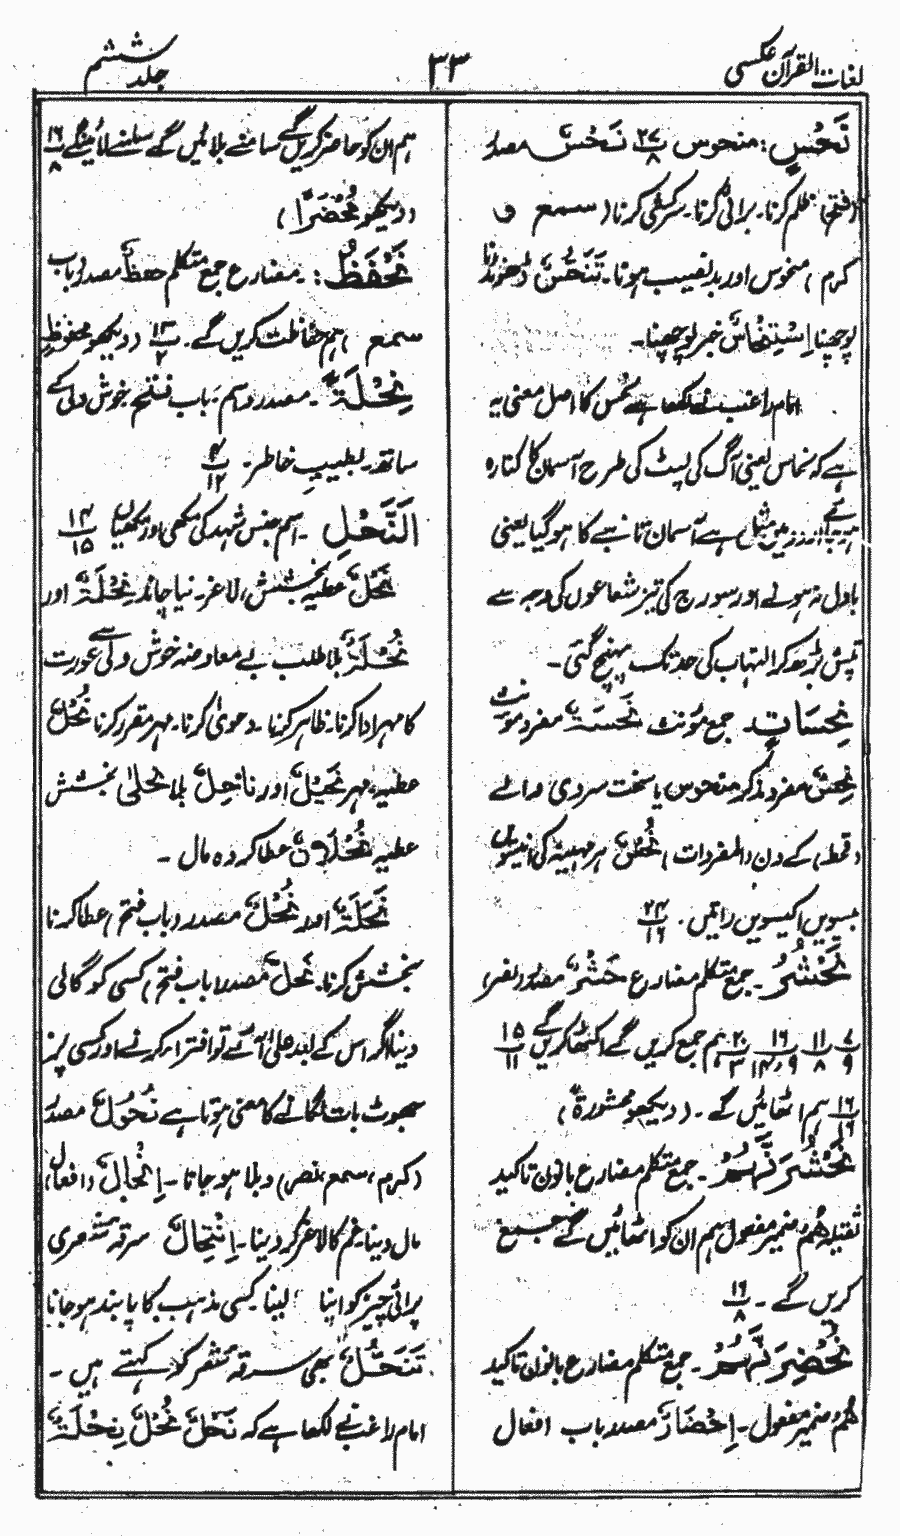 لغات القرآن عکسی
۳۳
جلد ششم
نَحْسٍ : منحوس ۲۷/۸ نَحُسَ مصدر
(فتح) ظلم کرنا۔ برائی کرنا۔ سرکشی کرنا (سمع و
کرم) منحوس اور بدنصیب ہونا۔ تَنَحُّسٌ ڈھونڈنا
پوچھنا اِسْتِنْحَاسٌ خبر پوچھنا۔
امام راغب نے لکھا ہے نحس کا اصل معنی یہ
ہے کہ نحاس یعنی آگ کی لپٹ کی طرح آسمان کا کنارہ
ہے آسمان تانبے کا ہو گیا یعنی
بادل نہ ہونے اور سورج کی تیز شعاعوں کی وجہ سے
تپش بڑھ کر التہاب کی حد تک پہنچ گئی۔
نَحِسَاتٍ۔ جمع مؤنث نَحِسَةٌ مفرد مؤنث
نَحِسٌ مفرد مذکر منحوس یا سخت سردی والے
(قحط) کے دن (المفردات) نَحْسٌ ہر مہینہ کی
بیسویں اکیسویں راتیں۔ ۲۴/۱۶
نَحْشُرُ۔ جمع متکلم مضارع حَشْرٌ مصدر (نصر)
۷/۹ ۱۱/۸ ۱۶/۹،۱۴ ۲۰/۳ ہم جمع کریں گے اکٹھا کریں گے ۱۵/۱۱
۱۶/۱۶ ہم اٹھائیں گے۔ (دیکھو محشورۃ)
نَحْشُرَنَّهُمْ۔ جمع متکلم مضارع بانون تاکید
ثقیلہ هُمْ ضمیر مفعول ہم ان کو اٹھائیں گے جمع
کریں گے۔ ۱۶/۸
نُحْضِرَنَّهُمْ۔ جمع متکلم مضارع بانون تاکید
هُمْ ضمیر مفعول۔ اِحْضَارٌ مصدر باب افعال
ہم ان کو حاضر کریں گے سامنے بلائیں گے سامنے لائینگے ۱۶/۸
(دیکھو مُحْضَرًا)
نَحْفَظُ :۔ مضارع جمع متکلم حِفْظٌ مصدر (باب
سمع) ہم حفاظت کریں گے۔ ۱۳/۲ (دیکھو محفوظ)
نِحْلَةً۔ مصدر و اسم، باب فتح خوش دلی کے
ساتھ بطیب خاطر۔ ۴/۱۲
النَّحْلِ۔ اسم جنس شہد کی مکھی اور مکھیاں ۱۴/۱۵
نُحْلٌ عطیہ بخشش، لاغر۔ نیا چاند نِحْلَةٌ اور
نُحْلَةٌ بلا طلب بے معاوضہ خوش دلی سے عورت
کا مہر ادا کرنا۔ ظاہر کرنا۔ دعویٰ کرنا۔ مہر مقرر کرنا نُحْلٌ
عطیہ، مہر نَحِیْلٌ اور نَاحِلٌ بلا نُحْلیٰ بخشش
عطیہ نُحْلَانٌ عطا کردہ مال۔
نُحْلَةٌ اور نُحْلٌ مصدر (باب فتح) عطا کرنا
بخشش کرنا۔ نَحْلٌ مصدر (باب فتح) کسی کو گالی
دینا اگر اس کے بعد علیٰ آئے تو افترا کرنے اور کسی پر
جھوٹ بات لگانے کا معنی ہوتا ہے نُحُوْلٌ مصدر
(کرم، سمع، نصر) دبلا ہو جانا۔ اِنْحَالٌ (افعال)
مال دینا، غم کا لاغر کر دینا۔ اِنْتِحَالٌ سرقہ شعری
پرائی چیز کو اپنا لینا کسی مذہب کا پابند ہو جانا
تَنَحُّلٌ بھی سرقہ شعر کو کہتے ہیں۔
امام راغب نے لکھا ہے کہ نَحْلٌ نُحْلٌ نِحْلَةٌ